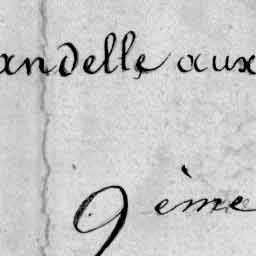 andelle aux
9ème